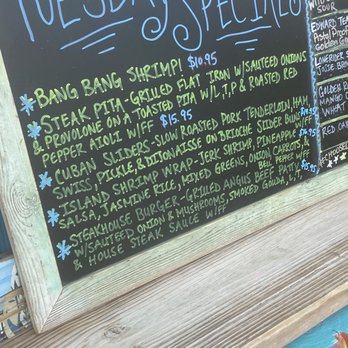 TUESDAY SPECIALS
* BANG BANG SHRIMP! $10.95
* STEAK PITA - GRILLED FLAT IRON W/SAUTEED ONIONS
& PROVOLONE ON A TOASTED PITA W/L,T,P & ROASTED RED
PEPPER AIOLI W/FF $15.95
* CUBAN SLIDERS - SLOW ROASTED PORK TENDERLOIN, HAM,
SWISS, PICKLE, & DIJONAISSE ON BRIOCHE SLIDER BUN W/FF
* ISLAND SHRIMP WRAP - JERK SHRIMP, PINEAPPLE
SALSA, JASMINE RICE, MIXED GREENS, ONION, CARROTS, &
BELL PEPPER W/FF
* STEAKHOUSE BURGER - GRILLED ANGUS BEEF PATTY
W/SAUTEED ONION & MUSHROOMS, SMOKED GOUDA, L,T,P
& HOUSE STEAK SAUCE W/FF
SOUR
GOLDEN
MANGO
RED CA